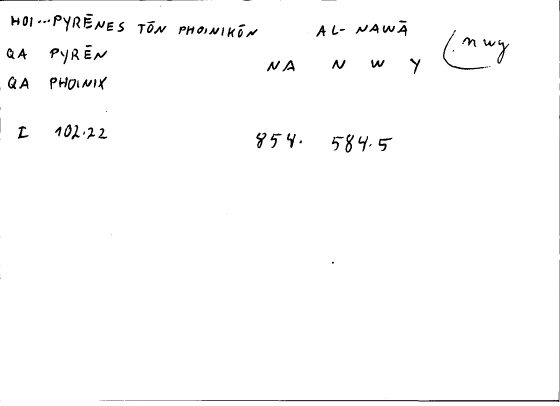 HOI...PYRĒNES TŌN PHOINIKŌN AL-NAWĀ (nwy
QA PYRĒN NA N W Y
QA PHOINIX
I 102.22 854. 584.5